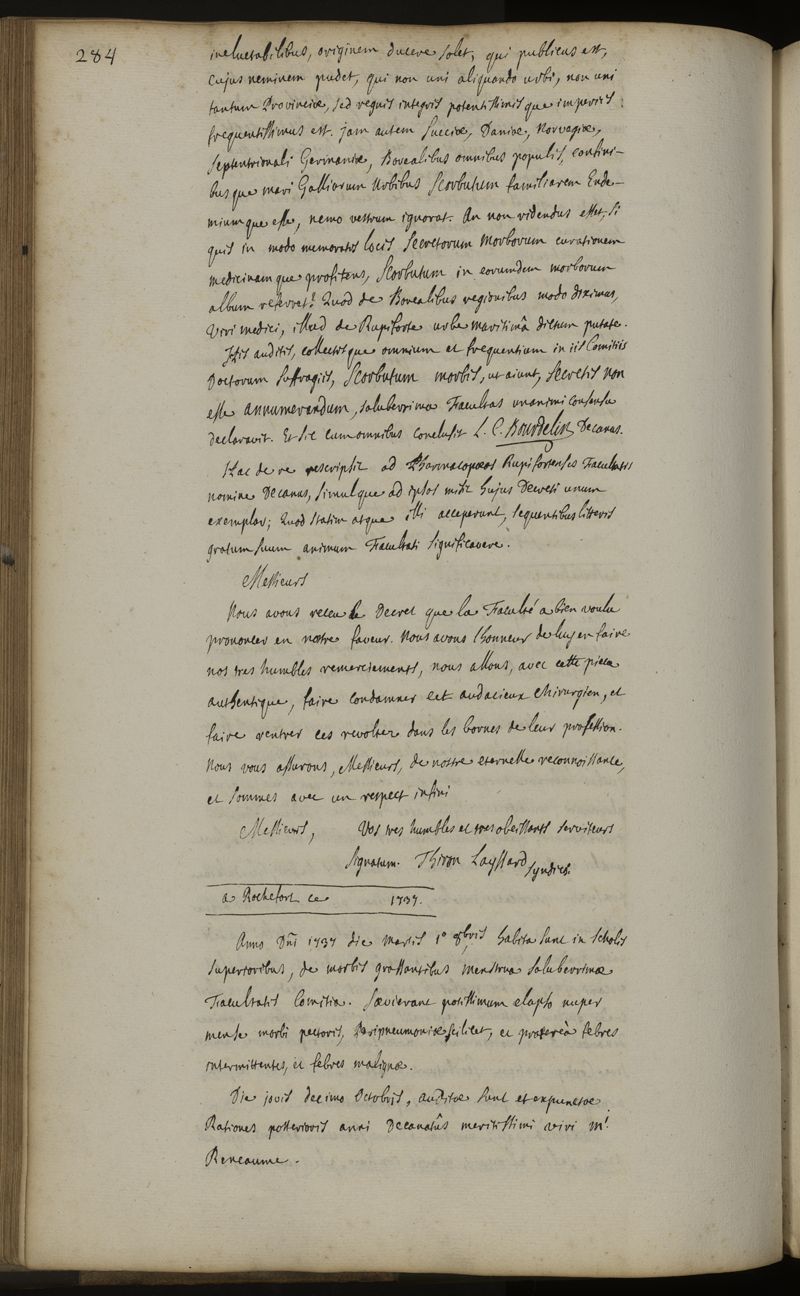 284
ineluctabilibus, originem ducere solet, qui publicus est,
cujus neminem pudet, qui non uni aliquando urbi, non uni
tantum Provinciæ, sed regnis integris potentissimisque imperiis
frequentissimus est. jam autem Sueciæ, Daniæ, Norvegiæ,
septentrionali Germaniæ, Borealibus omnibus populis, confini-
busque mari Galliarum Urbibus Scorbutum familiarem Ende-
miumque esse, nemo vestrum ignorat. An non ridendus esset, si
quis in modo memoratis locis Secretorum Morborum curationem
medicinamque profitens, Scorbutum in eorumdem morborum
album referret? Quod de Borealibus regionibus modo diximus,
Viri medici, illud de Rupiforte urbe maritimâ dictum putate.
His auditis, collectisque omnium et frequentium in iis Comitiis
Doctorum Suffragiis, Scorbutum morbis, ut aiunt, Secretis non
esse annumerandum, saluberrima Facultas unanimi consensu
declaravit. Et sic cum omnibus conclusit L. C. Bourdelin Decanus.
Hac de re rescripsit ad Pharmacopœos Rupifortenses Facultatis
nomine Decanus, simulque ad ipsos misit hujus Decreti unum
exemplar; Quod statim atque illi acceperunt, sequentibus litteris
gratum suum animum Facultati significavere.
Messieurs
Nous avons receu le Decret que la Faculté a bien voulu
prononcer en nostre faveur. Nous avons l'honneur de luy en faire
nos tres humbles remerciements, nous allons, avec cette piece
authentique, faire condamner cet audacieux chirurgien, et
faire rentrer ces revoltez dans les bornes de leur profession.
Nous vous assurons, Messieurs, de nostre eternelle reconnoissance,
et sommes avec un respect infini
Messieurs, Vos tres humbles et tres obeissants serviteurs
Signatum. Thiron Layssard syndics.
a Rochefort ce 1737.
Anno Dni 1737 die Martis 1º 8bris habita sunt in scholis
superioribus, de morbis grassantibus menstrua saluberrimæ
Facultatis Comitia. Sævierant potissimum elapso nuper
mense morbi pectoris, Peripneumoniæ scilicet, et prætereà febres
intermittentes, et febres malignæ.
Die jovis decimo Octobris, auditæ sunt et expunctæ
Rationes posterioris anni Decanatûs meritissimi viri Mi.
Reneaume.